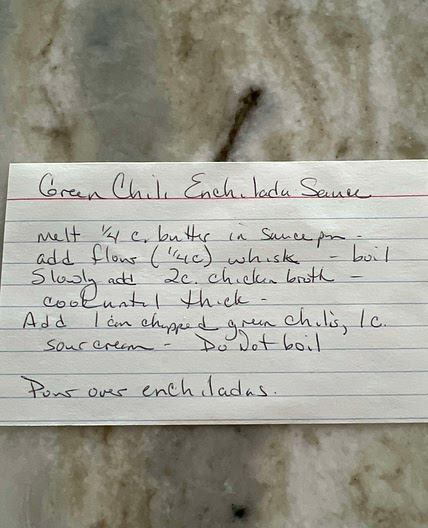 Green Chili Enchilada Sauce
melt 1/4 c. butter in sauce pan -
add flour (1/4c) whisk - boil
Slowly add 2c. chicken broth -
cook until thick -
Add 1 can chopped green chilis, 1 c.
sour cream - Do Not boil
Pour over enchiladas.